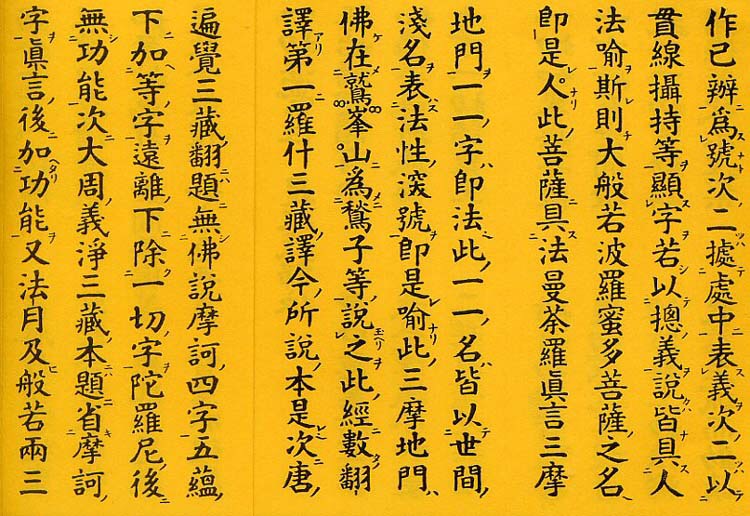 作已辨爲號次二據處中表義次二以
貫線攝持等顯字若以摠義說皆具人
法喻斯則大般若波羅蜜多菩薩之名
卽是人此菩薩具法曼荼羅眞言三摩
地門一一字卽法此一一名皆以世間
淺名表法性深號卽是喻此三摩地門
佛在鷲峯山爲鶖子等說之此經數翻
譯第一羅什三藏譯今所說本是次唐
遍覺三藏翻題無佛說摩訶四字五蘊
下加等字遠離下除一切字陀羅尼後
無功能次大周義淨三藏本題省摩訶
字眞言後加功能又法月及般若兩三